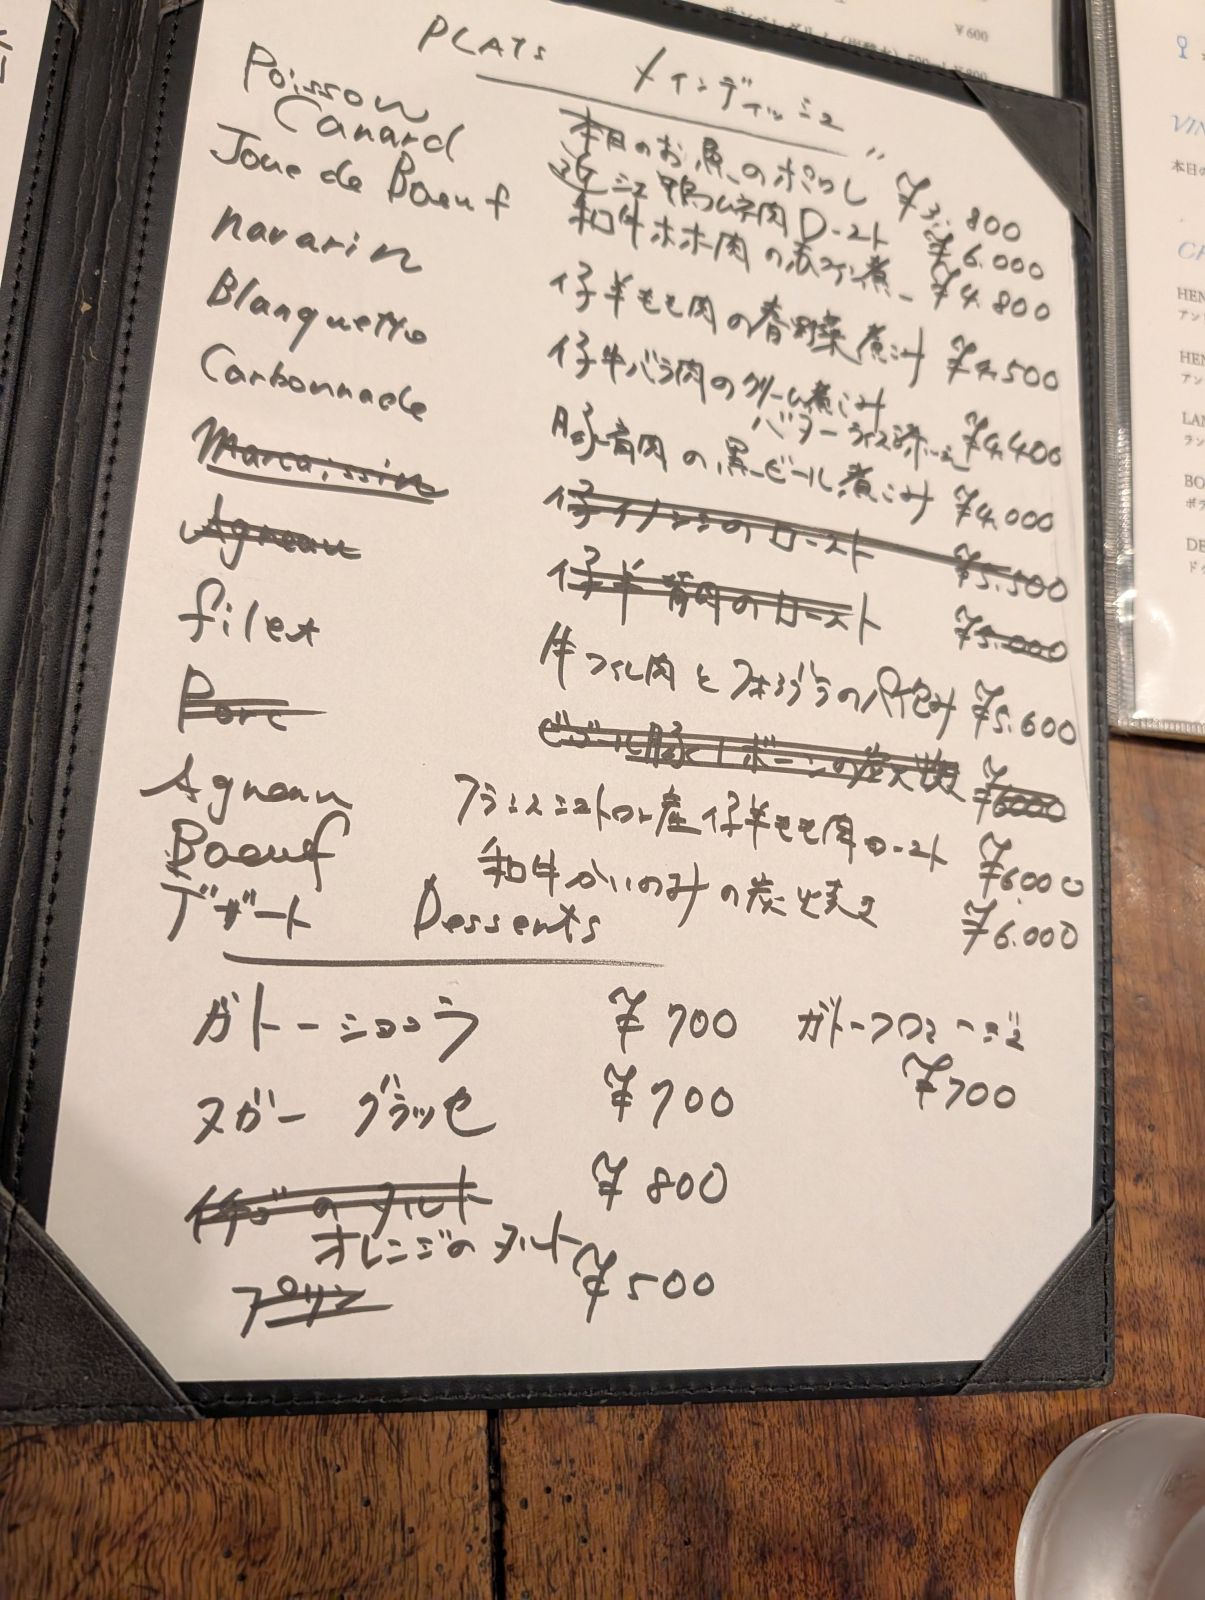 ¥600
PLATS メインディッシュ
Poisson 本日のお魚のポワレ ¥3.800
Canard 近江鴨ムネ肉ロースト ¥6.000
Joue de Boeuf 和牛ホホ肉の赤ワイン煮 ¥4.800
navarin 仔羊もも肉の春野菜煮込み ¥4.500
Blanquette 仔牛バラ肉のクリーム煮こみ
バターライス添え ¥4.400
Carbonnade 豚肩肉の黒ビール煮こみ ¥4.000
Marcassin 仔イノシシのロースト ¥5.500
Agneau 仔羊背肉のロースト ¥5.000
filet 牛フィレ肉とフォアグラのパイ包み ¥5.600
Porc ビゴール豚Tボーンの炭火焼 ¥6000
Agneau フランス産仔羊もも肉ロースト ¥6.000
Boeuf 和牛かいのみの炭火焼き ¥6.000
デザート Desserts
ガトーショコラ ¥700
ガトーフロマージュ
¥700
ヌガー グラッセ ¥700
イチゴのタルト ¥800
オレンジのタルト
プリン ¥500
VIN
本日の
HEN
アン
HEN
アン
LAN
ラン
BO
ボラ
DE
ドゥ